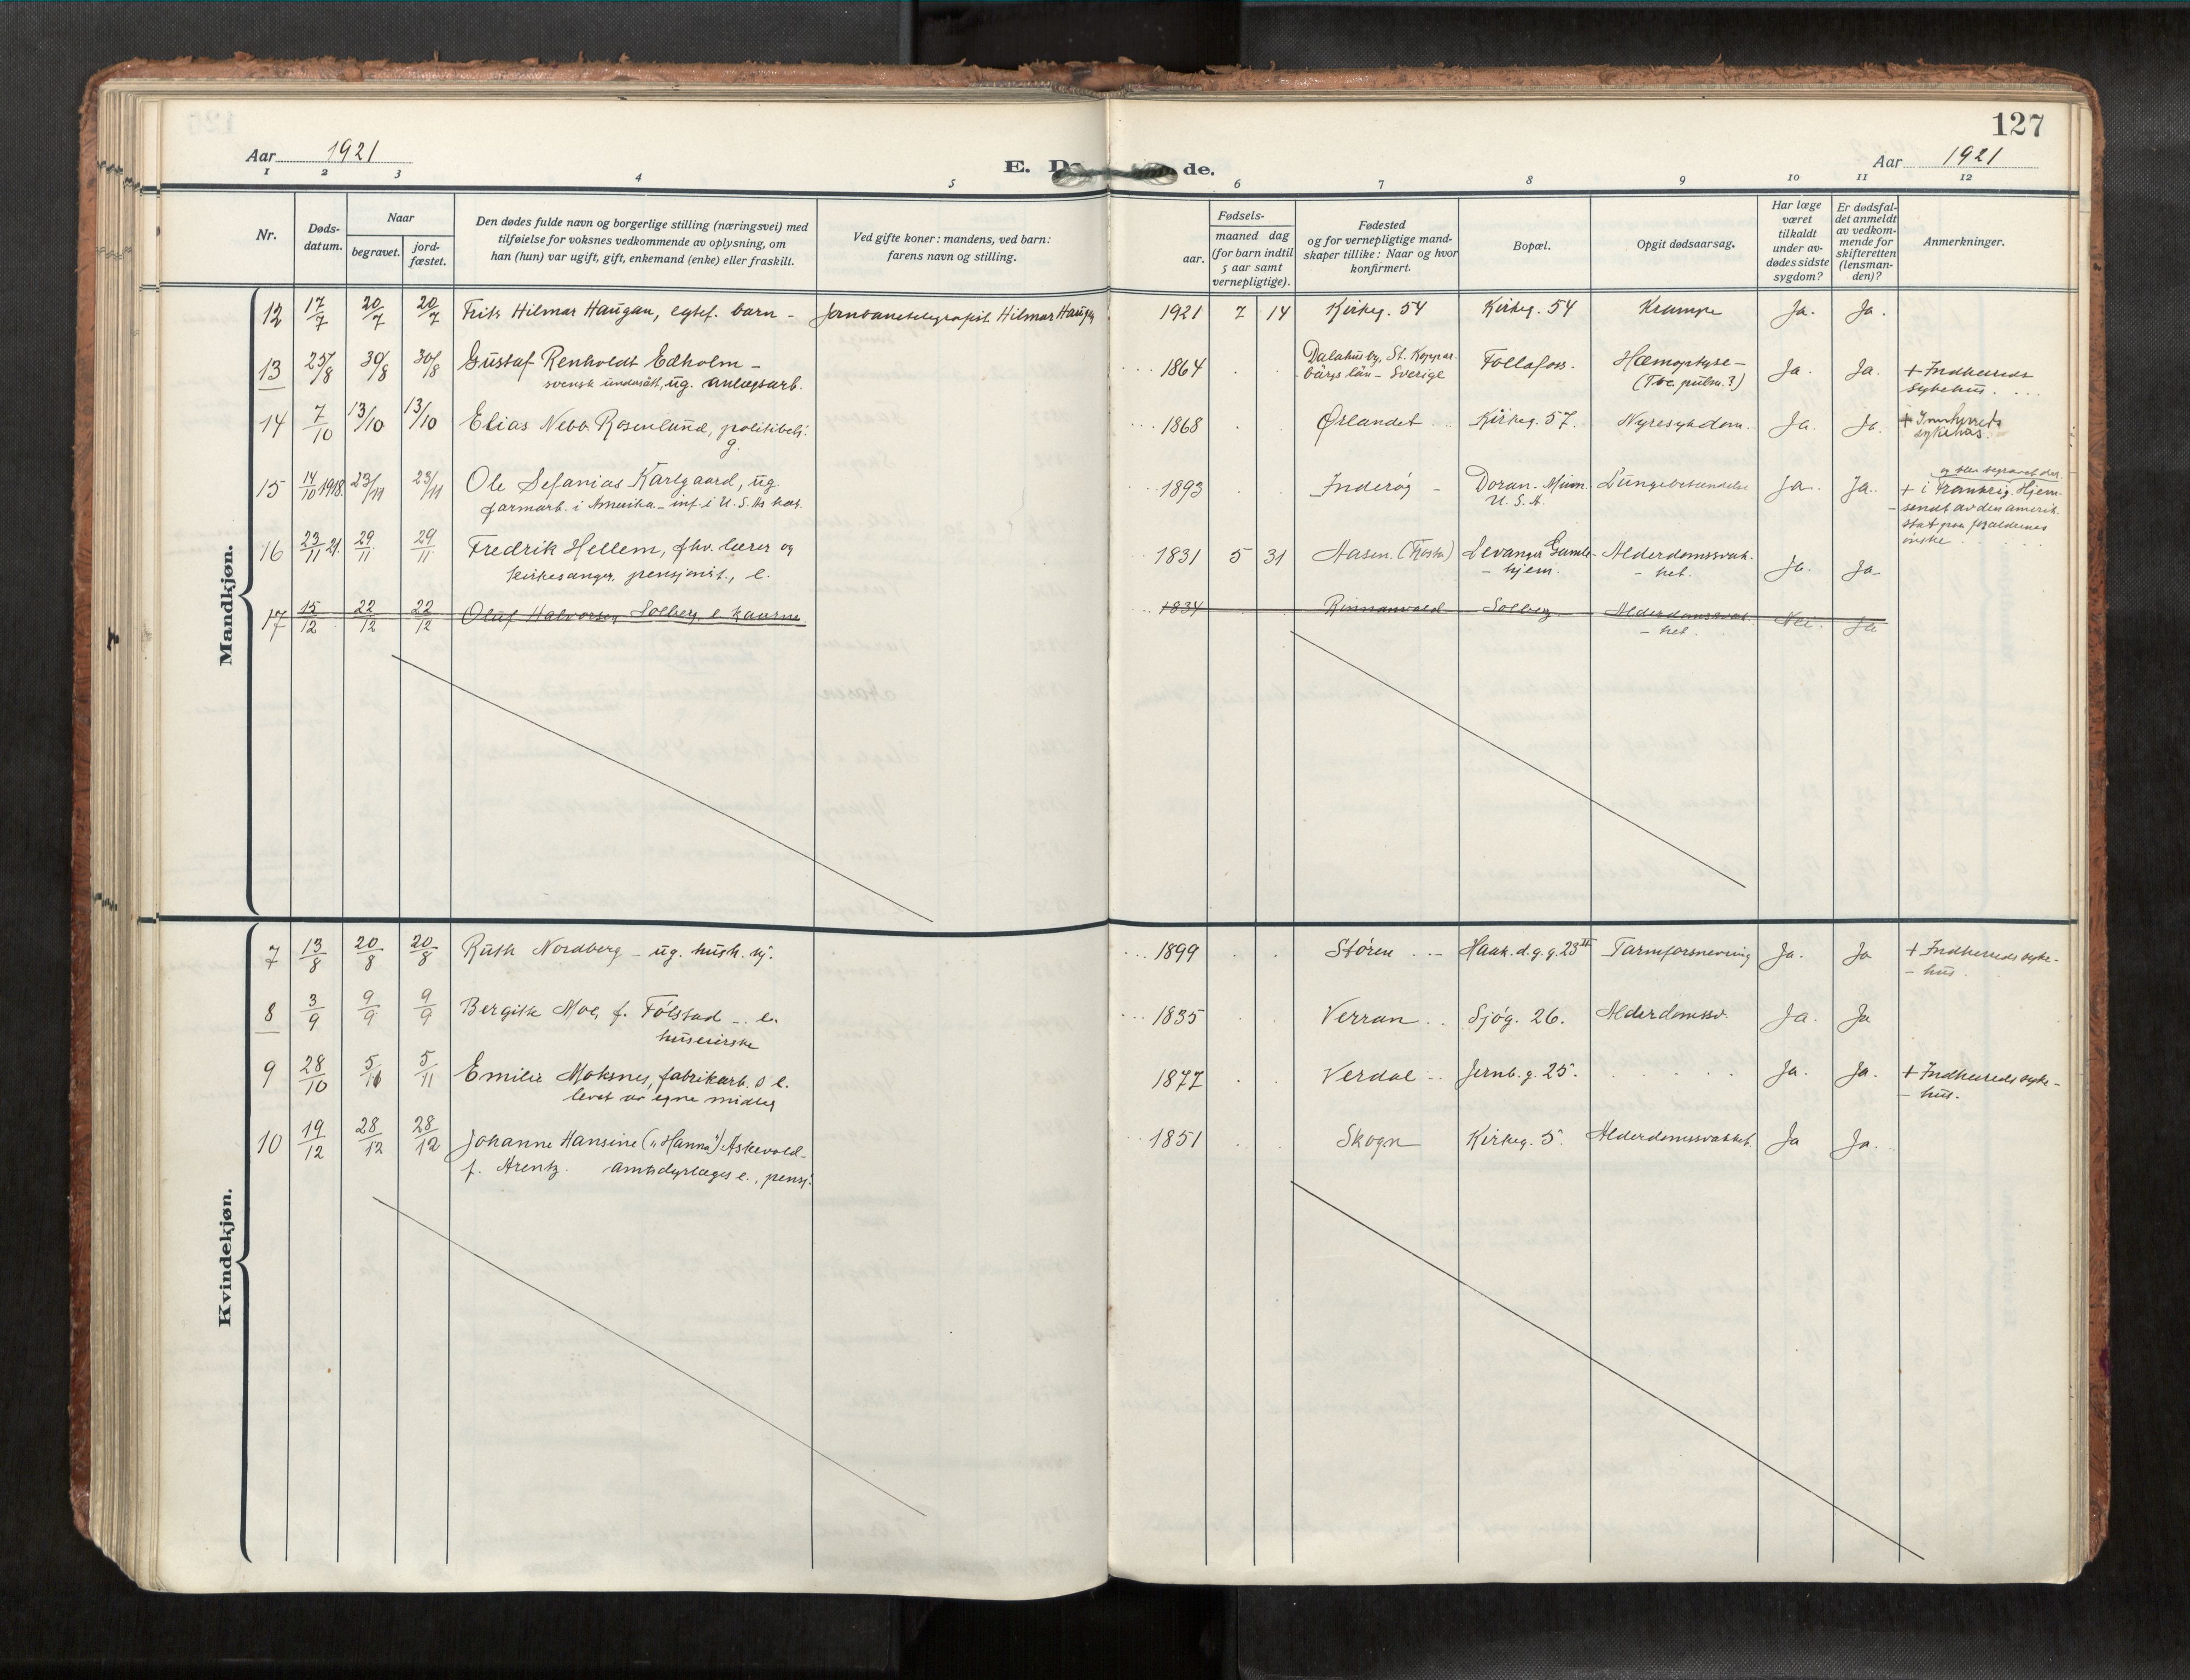 127
Aar 1921
E. D de.
Aar 1921
1 2 3 4 5 6 7 8 9 10 11 12
Nr.
Døds-
datum.
Naar
begravet.
jord-
fæstet.
Den dødes fulde navn og borgerlige stilling (næringsvei) med
tilføielse for voksnes vedkommende av oplysning, om
han (hun) var ugift, gift, enkemand (enke) eller fraskilt.
Ved gifte koner: mandens, ved barn:
farens navn og stilling.
Fødsels-
aar.
maaned dag
(for barn indtil
5 aar samt
vernepligtige).
Fødested
og for vernepligtige mand-
skaper tillike: Naar og hvor
konfirmert.
Bopæl.
Opgit dødsaarsag.
Har læge
været
tilkaldt
under av-
dødes sidste
sygdom?
Er dødsfal-
det anmeldt
av vedkom-
mende for
skifteretten
(lensman-
den)?
Anmerkninger.
Mandkjøn.
12 17/7 20/7 20/7 Frits Hilmar Haugan, egtef. barn - Jernbanetelegrafist Hilmar Haugan 1921 7 14 Kirkeg. 54 Kirkeg. 54 Krampe Ja. Ja.
13 25/8 30/8 30/8 Gustaf Renholdt Edholm - 1864 Dalahusby, St. Koppar- Follafoss. Hæmoptyse - Ja. Ja. + Indherreds
svensk undersått, ug. anlegsarb. bärgs län - Sverige (Tbc. pulm.?) sykehus.
14 7/10 13/10 13/10 Elias Nebb Rosenlund, politibetj. 1868 Ørlandet Kirkeg. 57. Nyresykdom. Ja. Ja. + Innherreds
g. sykehus.
15 14/10 1918. 23/11 23/11 Ole Sefanias Karlgaard, ug. 1893 Inderøy - Doran - Minn. Lungebetændelse Ja. Ja. og blev begravet der.
farmarb. i Amerika - inf. i U.S.As hær. U.S.A. + i Frankrig. Hjem-
sendt av den amerik.
stat paa forældrenes
ønske
16 23/11 21. 29/11 29/11 Fredrik Hellem, fhv. lærer og 1831 5 31 Aasen. (Fiska) Levanger Gamle- Alderdomssvak- Ja. Ja
kirkesanger, pensjonist, e. - hjem. - het.
17 15/12 22/12 22/12 Oluf Halvorsen Solberg, e. kaarm. 1834 Rinnanvald Solberg Alderdomssvak- Nei. Ja
- het.
Kvindekjøn.
7 13/8 20/8 20/8 Ruth Nordberg - ug. hush. bj. 1899 Støren Haak. d. g. g. 23 II Tarmforsnevring Ja. Ja + Indherreds syke-
- hus.
8 3/9 9/9 9/9 Bergitte Moe, f. Følstad - e. 1835 Verran Sjøg. 26. Alderdomssv. Ja. Ja
huseierske
9 28/10 5/11 5/11 Emilie Moksnes, fabrikarb. s e. 1877 Verdal Jernb. g. 25. Ja. Ja. + Indherreds syke-
levet av egne midler - hus.
10 19/12 28/12 28/12 Johanne Hansine („Hanna") Askevold 1851 Skogn Kirkeg. 5. Alderdomssvakhet Ja Ja.
f. Arentz. amtsdyrlæges e., pensj.